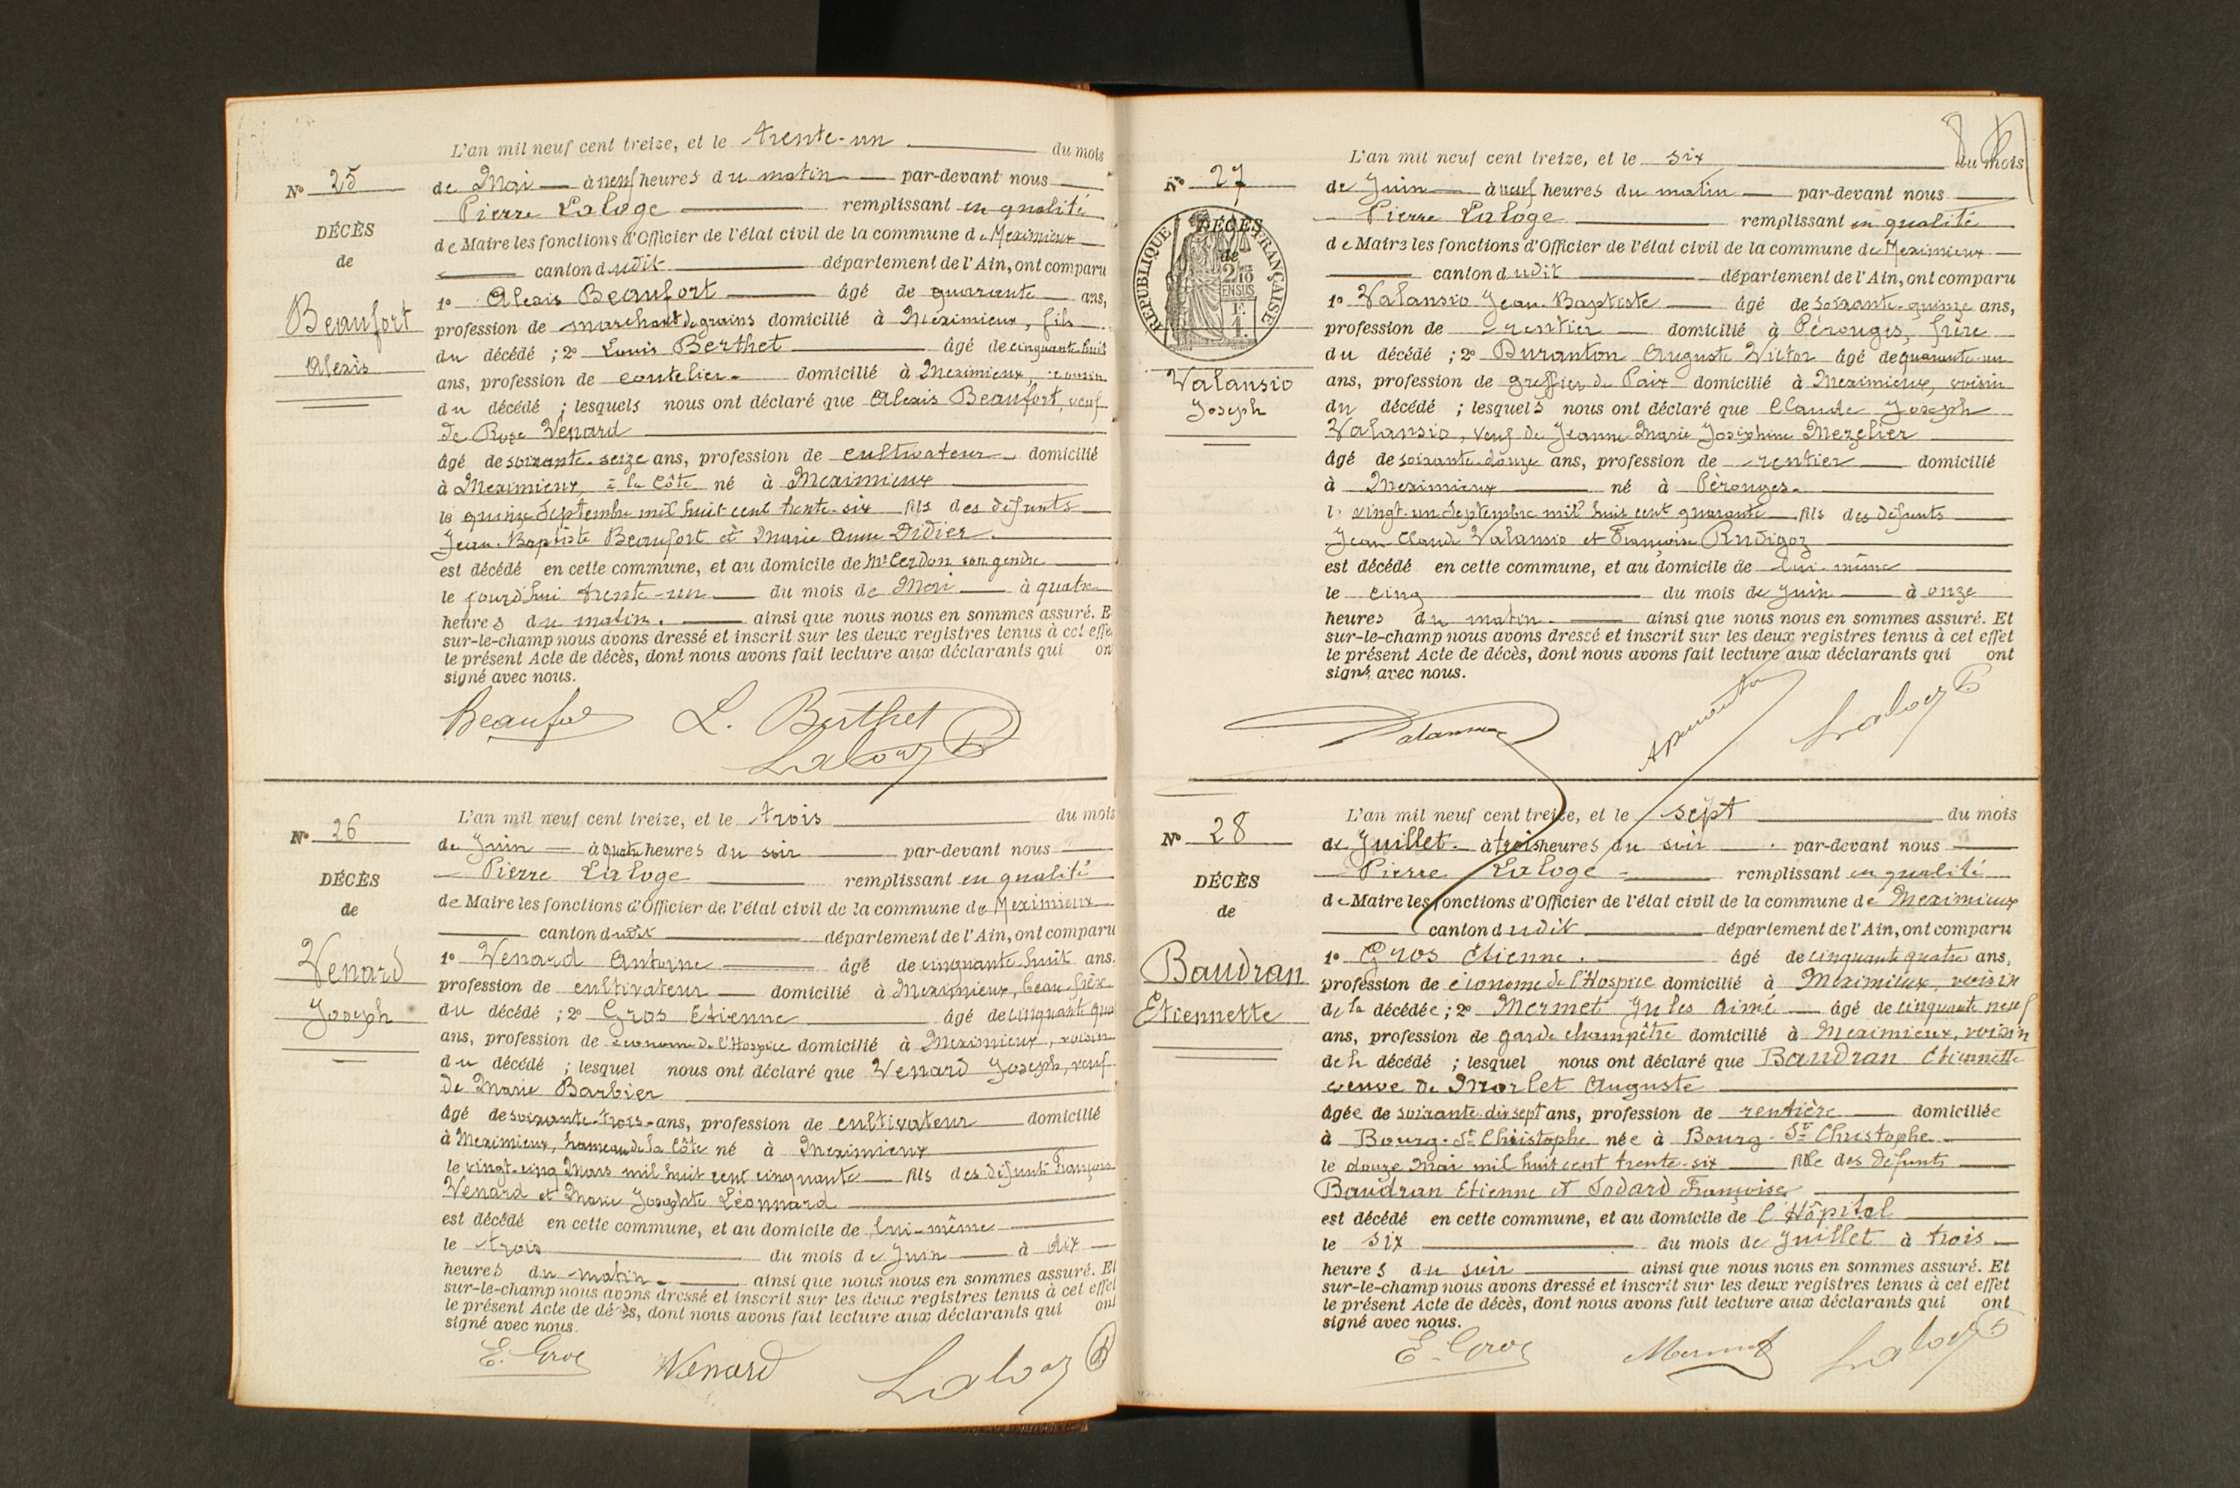 L'an mil neuf cent treize, et le trente-un du mois
N° 25
de Mai à neuf heures du matin par-devant nous
Pierre Laloge remplissant en qualité
DÉCÈS
de Maire les fonctions d'Officier de l'état civil de la commune de Meximieux
de
canton dudit département de l'Ain, ont comparu
1° Alexis Beaufort âgé de quarante ans,
Beaufort
profession de marchand de grains domicilié à Meximieux, fils
du décédé ; 2° Louis Berthet âgé de cinquante-huit
Alexis
ans, profession de coutelier domicilié à Meximieux, cousin
du décédé ; lesquels nous ont déclaré que Alexis Beaufort, veuf
de Rose Venard
âgé de soixante-seize ans, profession de cultivateur domicilié
à Meximieux, à la Côte né à Meximieux
le quinze Septembre mil huit cent trente-six fils des défunts
Jean-Baptiste Beaufort et Marie Anne Didier
est décédé en cette commune, et au domicile de Mr Cerdon son gendre
le jourd'hui trente-un du mois de Mai à quatre
heures du matin. ainsi que nous nous en sommes assuré. E
sur-le-champ nous avons dressé et inscrit sur les deux registres tenus à cet effe
le présent Acte de décès, dont nous avons fait lecture aux déclarants qui on
signé avec nous.
Beaufort L. Berthet
Laloge
L'an mil neuf cent treize, et le trois du mois
N° 26
de Juin à quatre heures du soir par-devant nous
Pierre Laloge remplissant en qualité
DÉCÈS
de Maire les fonctions d'Officier de l'état civil de la commune de Meximieux
de
canton dudit département de l'Ain, ont comparu
1° Venard Antoine âgé de cinquante-huit ans.
Venard
profession de cultivateur domicilié à Meximieux, beau-frère
Joseph
du décédé ; 2° Gros Etienne âgé de cinquante qua
ans, profession de économe de l'Hospice domicilié à Meximieux, voisin
du décédé ; lesquel nous ont déclaré que Venard Joseph, veuf
de Marie Barbier
âgé de soixante-trois ans, profession de cultivateur domicilié
à Meximieux, hameau de la Côte né à Meximieux
le vingt-cinq Mars mil huit cent cinquante fils des défunts François
Venard et Marie Josephte Léonnard
est décédé en cette commune, et au domicile de lui-même
le trois du mois de Juin à dix
heures du matin. ainsi que nous nous en sommes assuré. Et
sur-le-champ nous avons dressé et inscrit sur les deux registres tenus à cet effet
le présent Acte de décès, dont nous avons fait lecture aux déclarants qui ont
signé avec nous.
E. Gros Venard Laloge
L'an mil neuf cent treize, et le six du mois
N° 27
de Juin à neuf heures du matin par-devant nous
Pierre Laloge remplissant en qualité
DÉCÈS
de Maire les fonctions d'Officier de l'état civil de la commune de Meximieux
de
RÉPUBLIQUE FRANÇAISE
2/10 EN SUS
1 F.
canton dudit département de l'Ain, ont comparu
1° Valansio Jean-Baptiste âgé de soixante-quinze ans,
profession de rentier domicilié à Pérouges, frère
du décédé ; 2° Duranton Auguste Victor âgé de quarante-un
Valansio
ans, profession de greffier de Paix domicilié à Meximieux, voisin
Joseph
du décédé ; lesquels nous ont déclaré que Claude Joseph
Valansio, veuf de Jeanne Marie Joséphine Mezelier
âgé de soixante-douze ans, profession de rentier domicilié
à Meximieux né à Pérouges.
le vingt-un Septembre mil huit cent quarante fils des défunts
Jean Claude Valansio et Françoise Rudigoz
est décédé en cette commune, et au domicile de lui-même
le cinq du mois de Juin à onze
heures du matin. ainsi que nous nous en sommes assuré. Et
sur-le-champ nous avons dressé et inscrit sur les deux registres tenus à cet effet
le présent Acte de décès, dont nous avons fait lecture aux déclarants qui ont
signé avec nous.
Laloge
L'an mil neuf cent treize, et le sept du mois
N° 28
de Juillet à trois heures du soir par-devant nous
Pierre Laloge remplissant en qualité
DÉCÈS
de Maire les fonctions d'Officier de l'état civil de la commune de Meximieux
de
canton dudit département de l'Ain, ont comparu
1° Gros Etienne. âgé de cinquante quatre ans,
Baudran
profession de économe de l'Hospice domicilié à Meximieux, voisin
Etiennette
de la décédée ; 2° Mermet Jules Aimé âgé de cinquante neuf
ans, profession de garde champêtre domicilié à Meximieux, voisin
de la décédé ; lesquel nous ont déclaré que Baudran Etiennette
veuve de Morlet Auguste
âgée de soixante-dix sept ans, profession de rentière domiciliée
à Bourg-St Christophe née à Bourg-St Christophe
le douze Mai mil huit cent trente-six fille des défunts
Baudran Etienne et Jodard Françoise
est décédé en cette commune, et au domicile de l'Hôpital
le six du mois de Juillet à trois
heures du soir ainsi que nous nous en sommes assuré. Et
sur-le-champ nous avons dressé et inscrit sur les deux registres tenus à cet effet
le présent Acte de décès, dont nous avons fait lecture aux déclarants qui ont
signé avec nous.
E. Gros Mermet Laloge